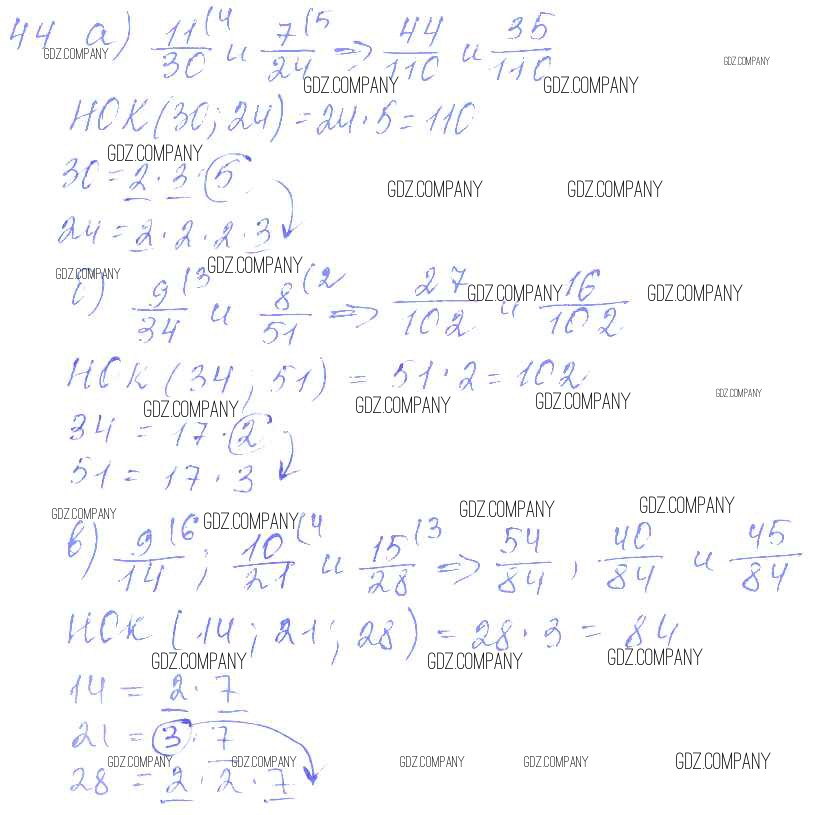 44 а) 11/30 (4 и 7/24 (5 => 44/110 и 35/110
GDZ.COMPANY GDZ.COMPANY
GDZ.COMPANY GDZ.COMPANY
НОК (30; 24) = 24 · 5 = 110
GDZ.COMPANY
30 = 2 · 3 · 5
GDZ.COMPANY GDZ.COMPANY
24 = 2 · 2 · 2 · 3
GDZ.COMPANY GDZ.COMPANY
9/34 (3 и 8/51 (2 => 27/102 и 16/102
GDZ.COMPANY GDZ.COMPANY
НОК (34; 51) = 51 · 2 = 102
GDZ.COMPANY GDZ.COMPANY GDZ.COMPANY GDZ.COMPANY
34 = 17 · 2
51 = 17 · 3
GDZ.COMPANY GDZ.COMPANY GDZ.COMPANY GDZ.COMPANY
в) 9/14 (6 ; 10/21 (4 и 15/28 (3 => 54/84 , 40/84 и 45/84
НОК (14; 21; 28) = 28 · 3 = 84
GDZ.COMPANY GDZ.COMPANY GDZ.COMPANY
14 = 2 · 7
21 = 3 · 7
GDZ.COMPANY GDZ.COMPANY GDZ.COMPANY GDZ.COMPANY GDZ.COMPANY
28 = 2 · 2 · 7